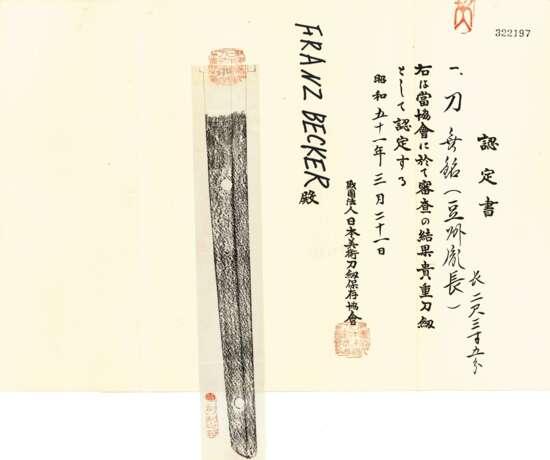 322197
認定書
一、刀 無銘(豆州胤長)
長 二尺三寸五分
右は當協會に於て審査の結果貴重刀剱
として認定する
昭和五十一年三月二十一日
財團法人日本美術刀剱保存協會
FRANZ BECKER 殿